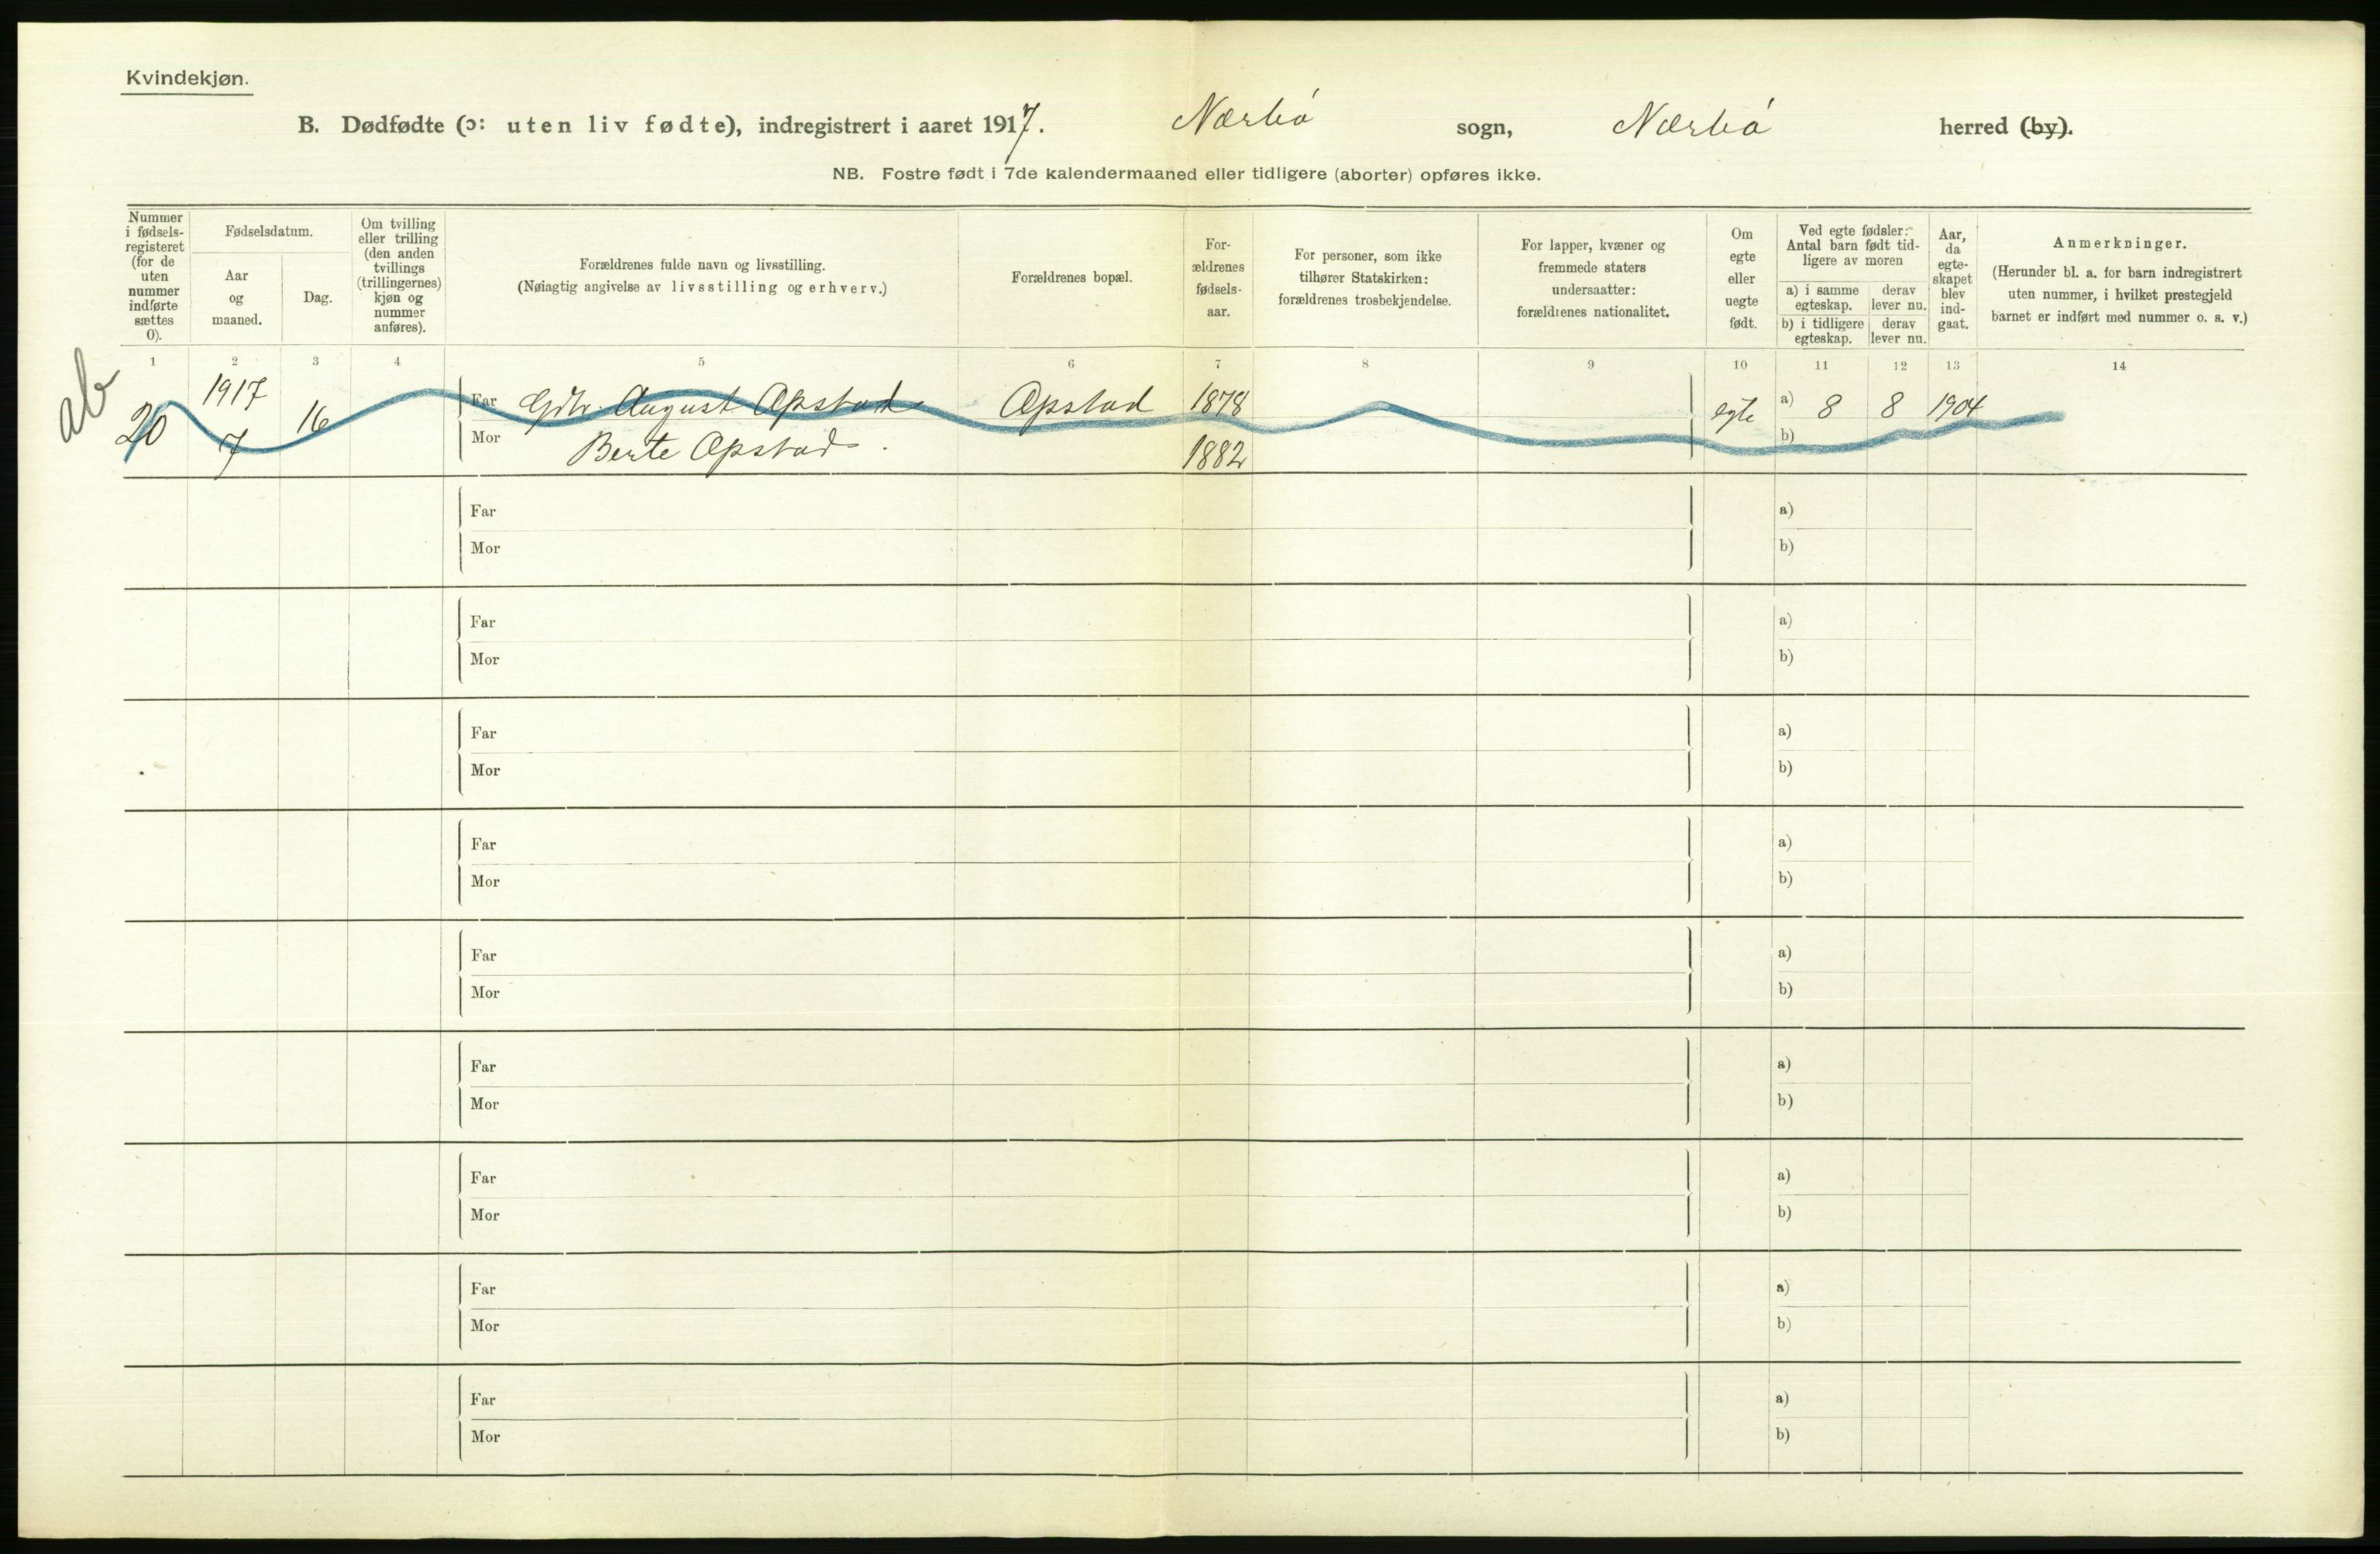 Kvindekjøn.
B. Dødfødte (ɔ: uten liv fødte), indregistrert i aaret 1917. Nærbó sogn, Nærbó herred (by).
NB. Fostre født i 7de kalendermaaned eller tidligere (aborter) opføres ikke.
Nummer
i fødsels-
registeret
(for de
uten
nummer
indførte
sættes
0).
Fødselsdatum.
Aar
og
maaned.
Dag.
Om tvilling
eller trilling
(den anden
tvillings
(trillingernes)
kjøn og
nummer
anføres).
Forældrenes fulde navn og livsstilling.
(Nøiagtig angivelse av livsstilling og erhverv.)
Forældrenes bopæl.
For-
ældrenes
fødsels-
aar.
For personer, som ikke
tilhører Statskirken:
forældrenes trosbekjendelse.
For lapper, kvæner og
fremmede staters
undersaatter:
forældrenes nationalitet.
Om
egte
eller
uegte
født.
Ved egte fødsler:
Antal barn født tid-
ligere av moren
a) i samme
egteskap.
derav
lever nu.
b) i tidligere
egteskap.
derav
lever nu.
Aar,
da
egte-
skapet
blev
ind-
gaat.
Anmerkninger.
(Herunder bl. a. for barn indregistrert
uten nummer, i hvilket prestegjeld
barnet er indført med nummer o. s. v.)
1 2 3 4 5 6 7 8 9 10 11 12 13 14
ab
20 1917 7 16
Far Gdbr. August Opstad Opstad 1878 egte a) 8 8 1904
Mor Berte Opstad. 1882 b)
Far a)
Mor b)
Far a)
Mor b)
Far a)
Mor b)
Far a)
Mor b)
Far a)
Mor b)
Far a)
Mor b)
Far a)
Mor b)
Far a)
Mor b)
Far a)
Mor b)